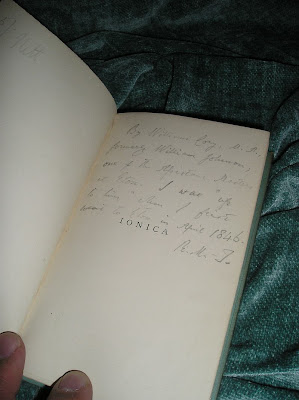 Platt
By William Cory, M.A.,
formerly William Johnson,
one of the Assistant Masters
at Eton. I was "up
to him" when I first
went to Eton in April 1846.
IONICA